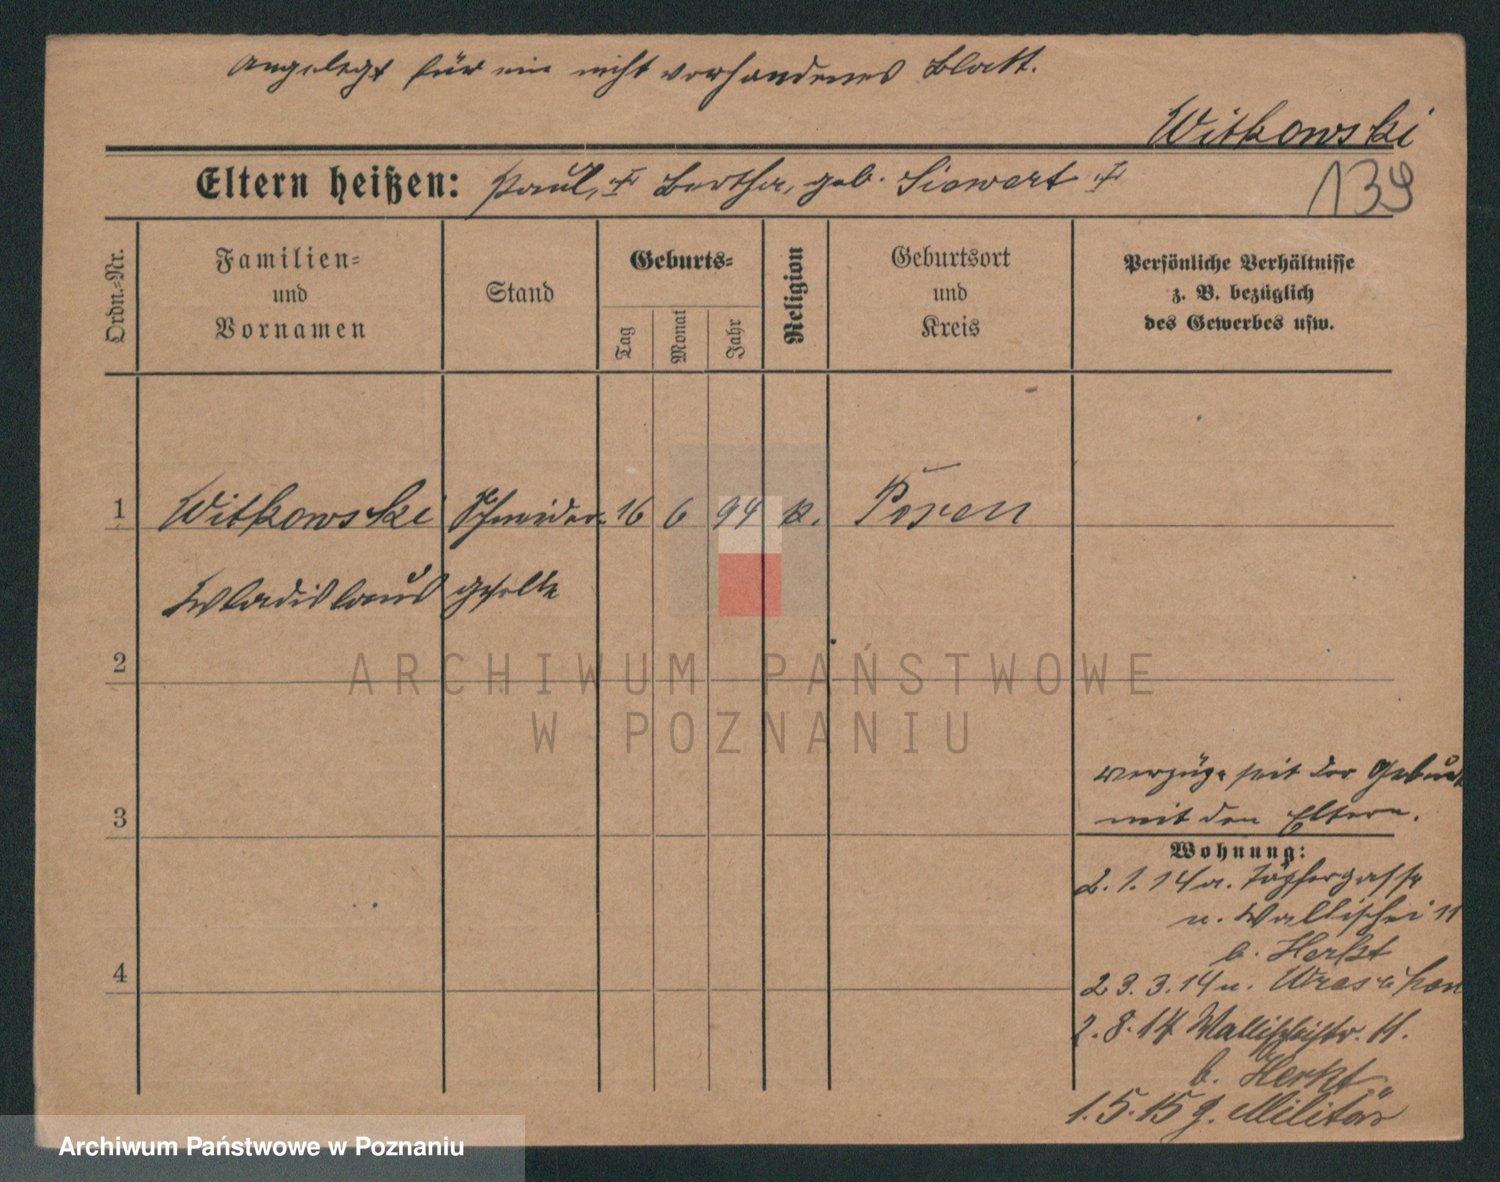 Angelegt für ein nicht vorhandenes Blatt.
Witkowski
Eltern heißen: Paul, † Bertha, geb. Siewert †
139
Ordn.-Nr.
Familien-
und
Vornamen
Stand
Geburts-
Tag
Monat
Jahr
Religion
Geburtsort
und
Kreis
Persönliche Verhältnisse
z. B. bezüglich
des Gewerbes usw.
1 Witkowski Schneider- 16 6 94 k. Posen
Wladislaus geselle
2
ARCHIWUM PAŃSTWOWE
W POZNANIU
seit der Geburt
3
mit den Eltern.
Wohnung:
2. 1. 14 a. Töpfergasse
n. Wallischei 11
b. Herkt
4
23. 3. 14 n. Wreschen
2. 8. 14 Wallischeistr. 11.
b. Herkt
1. 5. 15 z. Militär
Archiwum Państwowe w Poznaniu